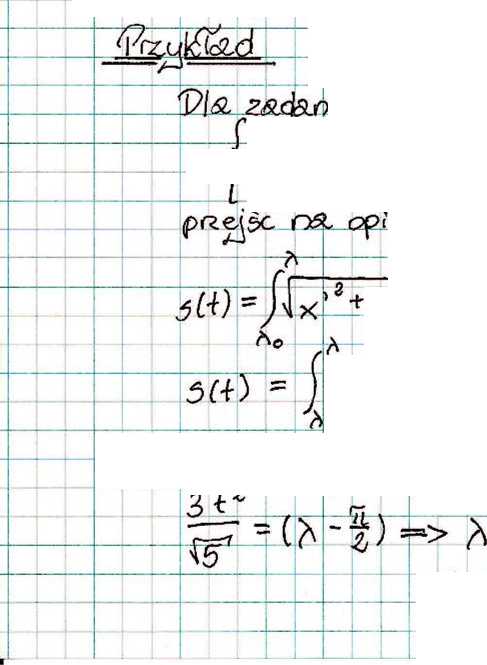 Przykład
Dla zadan
przejść na opi
s(t) = ∫_{λ₀}^{λ} √x'² +
s(t) = ∫_{λ}^{λ}
3 t² / √5 = (λ - π/2) => λ